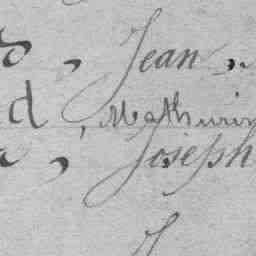 , Jean,
d, Mathurin
, Joseph